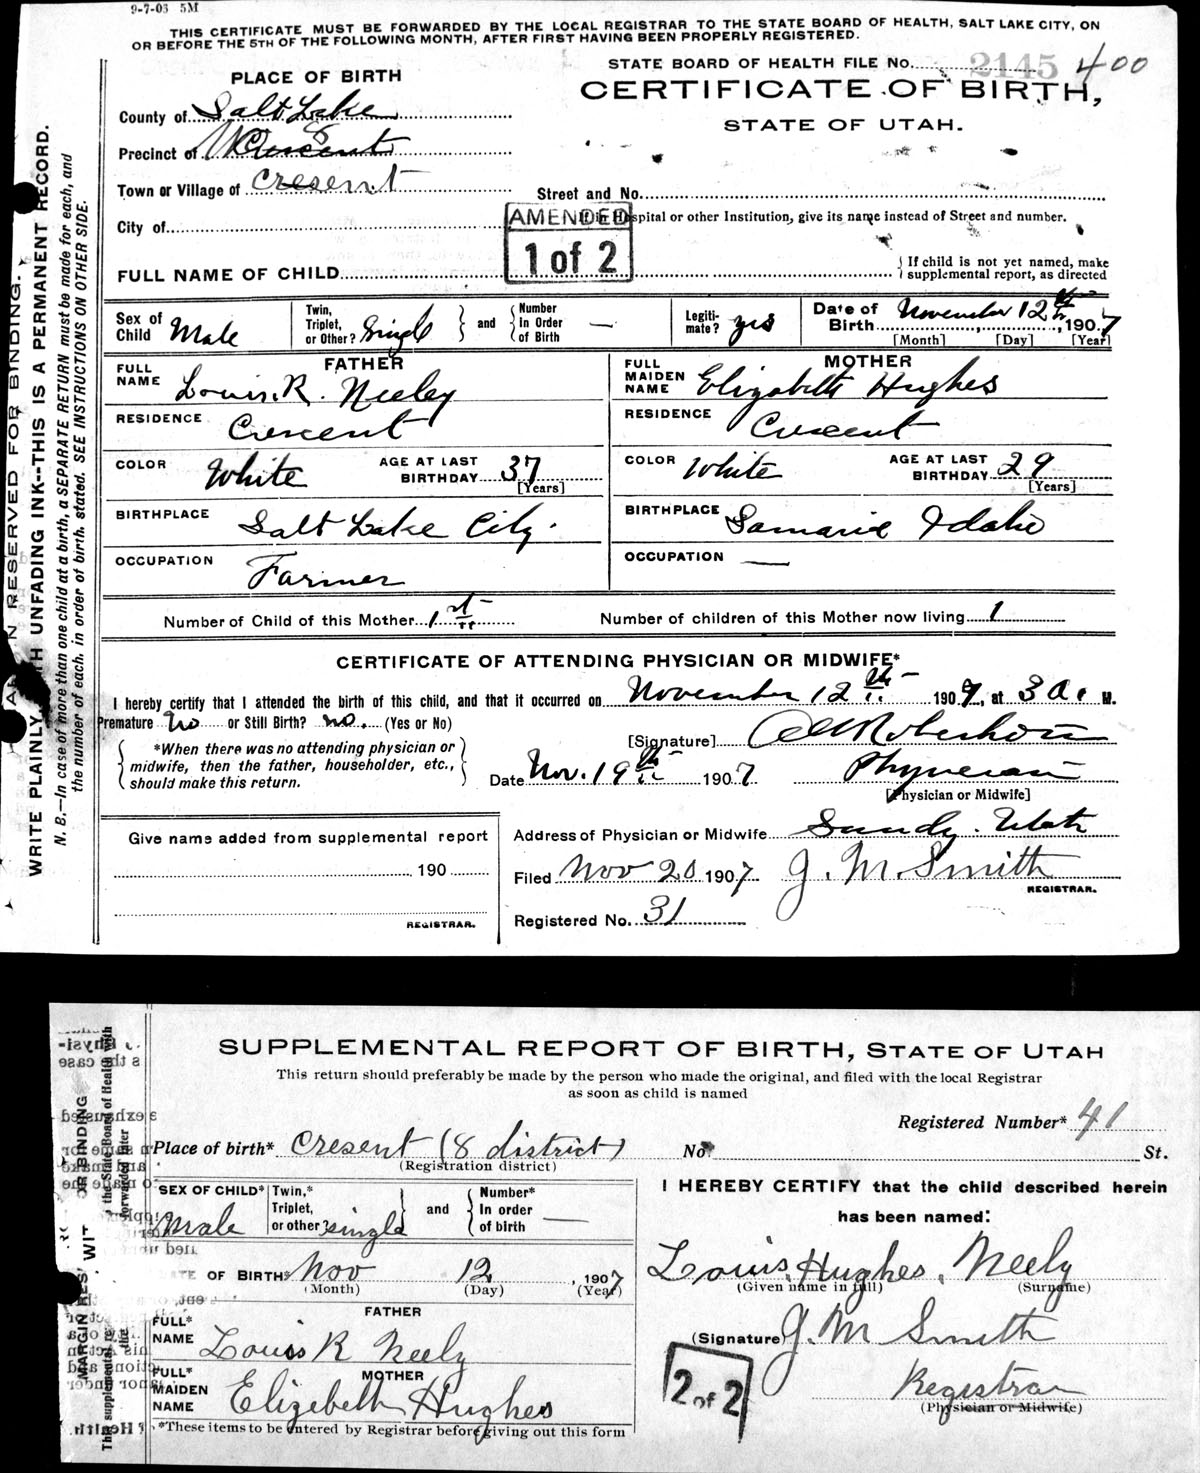 9-7-03 5M
THIS CERTIFICATE MUST BE FORWARDED BY THE LOCAL REGISTRAR TO THE STATE BOARD OF HEALTH, SALT LAKE CITY, ON
OR BEFORE THE 5TH OF THE FOLLOWING MONTH, AFTER FIRST HAVING BEEN PROPERLY REGISTERED.
STATE BOARD OF HEALTH FILE No. 2145 400
PLACE OF BIRTH
CERTIFICATE OF BIRTH,
STATE OF UTAH.
County of Salt Lake
Precinct of Crescent 8
Town or Village of Cresent
Street and No.
AMENDED
1 of 2
If in Hospital or other Institution, give its name instead of Street and number.
City of
FULL NAME OF CHILD
If child is not yet named, make
supplemental report, as directed
Sex of Child Male
Twin, Triplet, or Other? Single and Number In Order of Birth —
Legiti-mate? yes
Date of Birth November 12th, 1907
[Month] [Day] [Year]
FATHER
FULL NAME Louis. R. Neeley
MOTHER
FULL MAIDEN NAME Elizabeth Hughes
RESIDENCE Crescent
RESIDENCE Crescent
COLOR White AGE AT LAST BIRTHDAY 37 [Years]
COLOR White AGE AT LAST BIRTHDAY 29 [Years]
BIRTHPLACE Salt Lake City.
BIRTHPLACE Samaria Idaho
OCCUPATION Farmer
OCCUPATION —
Number of Child of this Mother 1st
Number of children of this Mother now living 1
CERTIFICATE OF ATTENDING PHYSICIAN OR MIDWIFE*
I hereby certify that I attended the birth of this child, and that it occurred on November 12th 1907, at 3 a. M.
Premature no or Still Birth? no. (Yes or No)
*When there was no attending physician or
midwife, then the father, householder, etc.,
should make this return.
[Signature]
Date Nov. 19th 1907 Physician
[Physician or Midwife]
Give name added from supplemental report
190
REGISTRAR.
Address of Physician or Midwife Sandy. Utah
Filed Nov 20 1907 J. M. Smith
REGISTRAR.
Registered No. 31
WRITE PLAINLY WITH UNFADING INK--THIS IS A PERMANENT RECORD.
N. B.—In case of more than one child at a birth, a SEPARATE RETURN must be made for each, and
the number of each, in order of birth, stated. SEE INSTRUCTIONS ON OTHER SIDE.
RESERVED FOR BINDING.
SUPPLEMENTAL REPORT OF BIRTH, STATE OF UTAH
This return should preferably be made by the person who made the original, and filed with the local Registrar
as soon as child is named
Registered Number* 41
Place of birth* Cresent (8 district) No St.
(Registration district)
SEX OF CHILD* Male
Twin,* Triplet, or other? single and Number* In order of birth —
I HEREBY CERTIFY that the child described herein
has been named:
DATE OF BIRTH* Nov 12, 1907
(Month) (Day) (Year)
Louis. Hughes. Neely
(Given name in full) (Surname)
FATHER
FULL* NAME Louis R Neely
(Signature) J. M Smith
MOTHER
FULL* MAIDEN NAME Elizebeth Hughes
2 of 2
Registrar
(Physician or Midwife)
*These items to be entered by Registrar before giving out this form